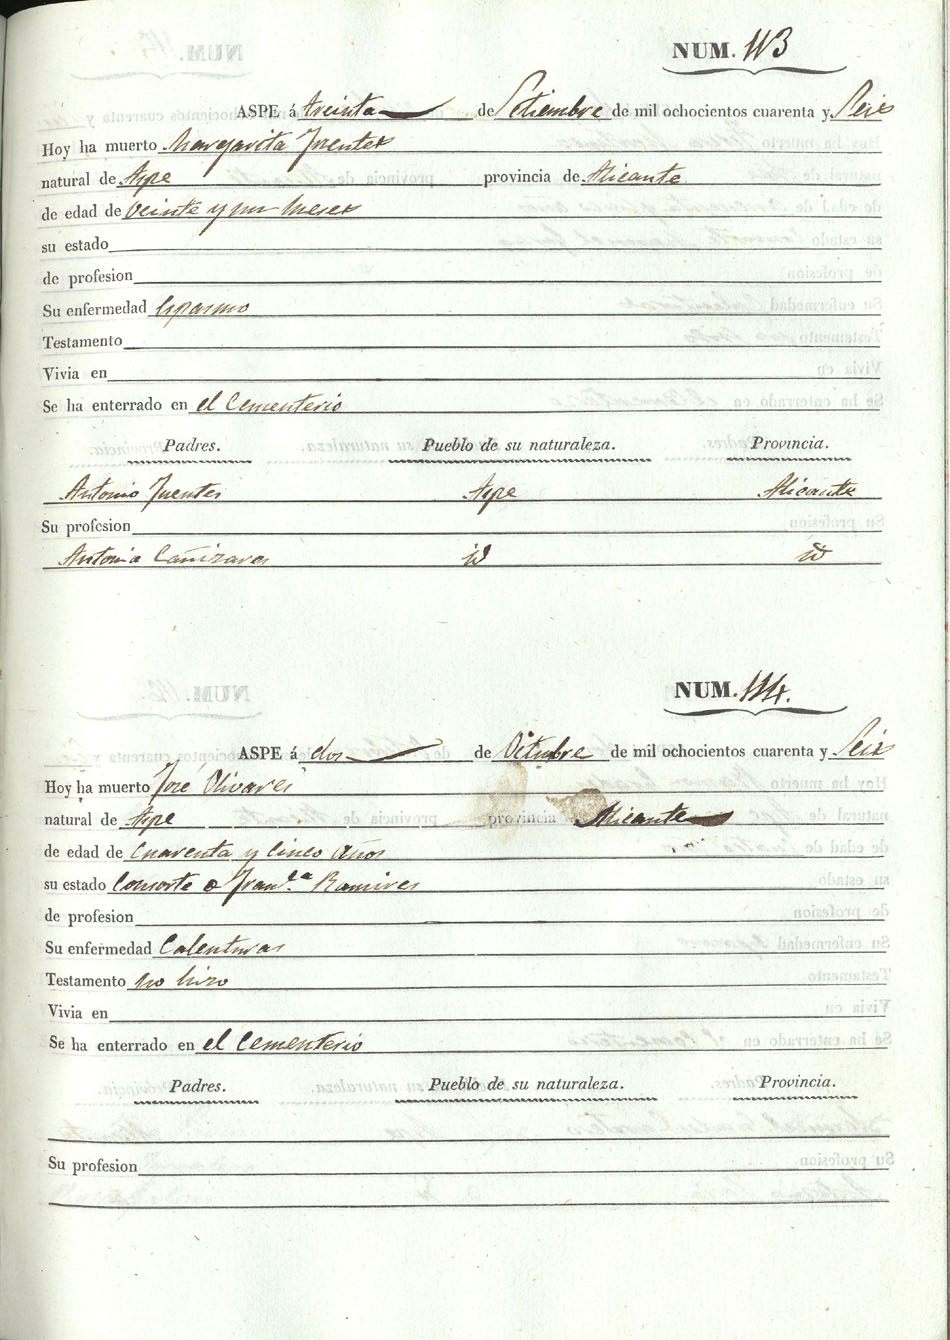 NUM. 113
ASPE á treinta de Setiembre de mil ochocientos cuarenta y Seis
Hoy ha muerto Margarita Fuentes
natural de Aspe provincia de Alicante
de edad de veinte y un Meses
su estado
de profesion
Su enfermedad Espasmo
Testamento
Vivia en
Se ha enterrado en el Cementerio
Padres. Pueblo de su naturaleza. Provincia.
Antonio Fuentes Aspe Alicante
Su profesion
Antonia Cañizares id id
NUM. 114.
ASPE á dos de Octubre de mil ochocientos cuarenta y Seis
Hoy ha muerto José Olivares
natural de Aspe provincia Alicante
de edad de Cuarenta y Cinco Años
su estado Consorte a Fran.ca Ramires
de profesion
Su enfermedad Calenturas
Testamento no hizo
Vivia en
Se ha enterrado en el Cementerio
Padres. Pueblo de su naturaleza. Provincia.
Su profesion